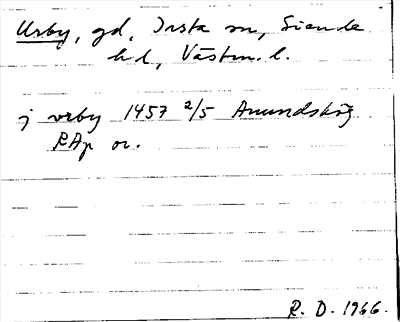 Urby, gd, Irsta sn, Siende
hd, Västm. l.
j vrby 1457 2/5 Amundshög
RAp or.
R. D. 1966.